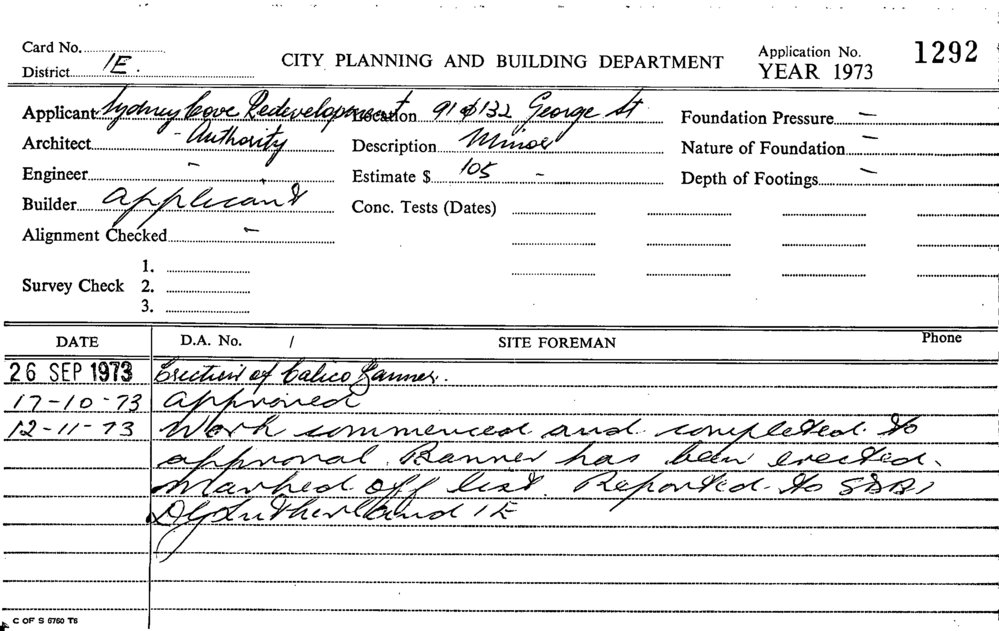 Card No.
CITY PLANNING AND BUILDING DEPARTMENT
Application No. 1292
District 1E.
YEAR 1973
Applicant Sydney Cove Redevelopment Location 91 & 132 George St Foundation Pressure –
Architect Authority Description Minor Nature of Foundation –
Engineer – Estimate $ 105 – Depth of Footings –
Builder Applicant Conc. Tests (Dates)
Alignment Checked –
1.
Survey Check 2.
3.
DATE D.A. No. / SITE FOREMAN Phone
26 SEP 1973 Erection of Calico Banner.
17-10-73 Approved
12-11-73 Work commenced and completed to
approval. Banner has been erected.
Marked off list. Reported to SDBI
Sutherland 1E
C OF S 6760 T6